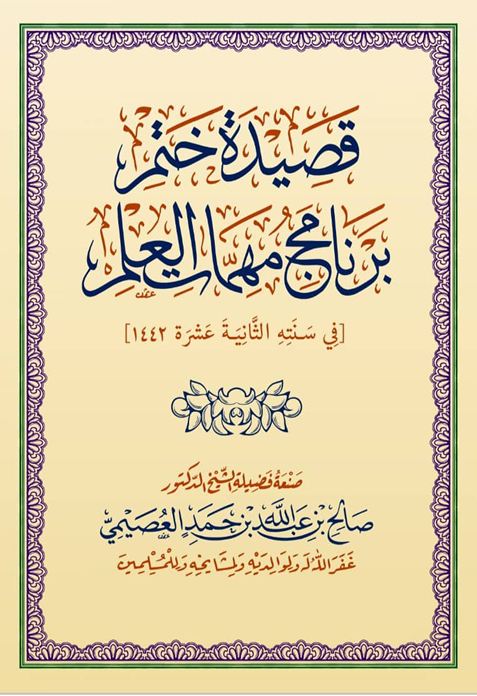 قَصِيدَةُ خَتْمِ
بَرْنَامَجِ مُهِمَّاتِ الْعِلْمِ
[فِي سَنَتِهِ الثَّانِيَةَ عَشْرَة ١٤٤٢]
صَنْعَةُ فَضِيلَةِ الشَّيْخِ الدُّكْتُورِ
صَالِحِ بْنِ عَبْدِ اللَّهِ بْنِ حَمَدٍ الْعُصَيْمِيِّ
غَفَرَ اللَّهُ لَهُ وَلِوَالِدَيْهِ وَلِمَشَايِخِهِ وَلِلْمُسْلِمِينَ